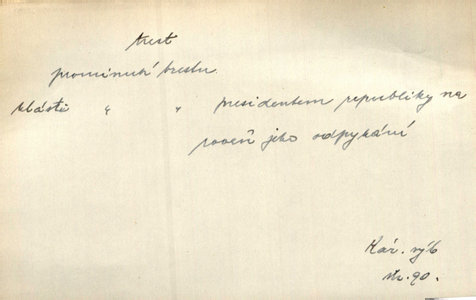 trest
prominutí trestu
zvláště " " presidentem republiky na
roveň jeho odpykání
Kár. výb
str. 90.